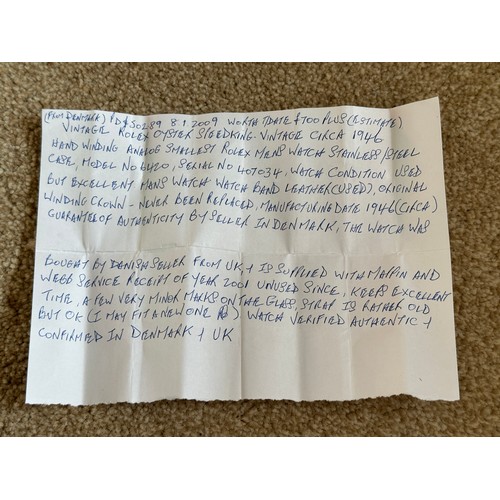 (FROM DENMARK) PD $502.89 8.1.2009 WORTH TDATE £700 PLUS (ESTIMATE)
VINTAGE ROLEX OYSTER SPEEDKING - VINTAGE CIRCA 1946
HAND WINDING ANALOG SMALLEST ROLEX MENS WATCH STAINLESS/STEEL
CASE, MODEL NO 6420, SERIAL NO 407034, WATCH CONDITION USED
BUT EXCELLENT MANS WATCH WATCH BAND LEATHER (USED), ORIGINAL
WINDING CROWN - NEVER BEEN REPLACED, MANUFACTURING DATE 1946 (CIRCA)
GUARANTEE OF AUTHENTICITY BY SELLER IN DENMARK, THE WATCH WAS
BOUGHT BY DENISH SELLER FROM UK + IS SUPPLIED WITH MAPPIN AND
WEBB SERVICE RECEIPT OF YEAR 2001 UNUSED SINCE, KEEPS EXCELLENT
TIME, A FEW VERY MINOR MARKS ON THE GLASS, STRAP IS RATHER OLD
BUT OK (I MAY FIT A NEW ONE) WATCH VERIFIED AUTHENTIC +
CONFIRMED IN DENMARK + UK